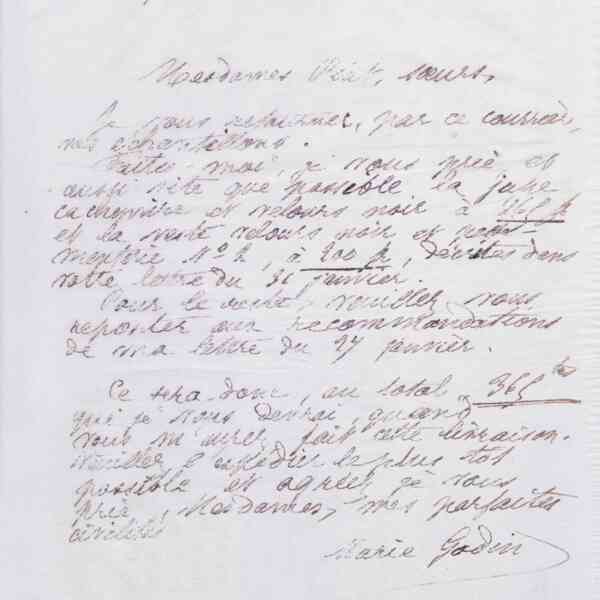 Mesdames Piat, sœurs,
Je vous retourner, par ce courrier,
vos échantillons.
Faites-moi, je vous prie et
aussi vite que possible la jupe
cachemire et velours noir à 265 f
et la veste velours noir et
menterie No 2, à 200 f, décrites dans
votre lettre du 31 janvier.
Pour le reste, veuillez vous
reporter aux recommandations
de ma lettre du 27 janvier.
Ce sera donc, au total, 365 frs
que je vous devrai, quand
vous m'aurez fait cette livraison.
Veuillez l'expédier le plus tôt
possible et agréer je vous
prie, Mesdames, mes parfaites
civilités
Marie Godin